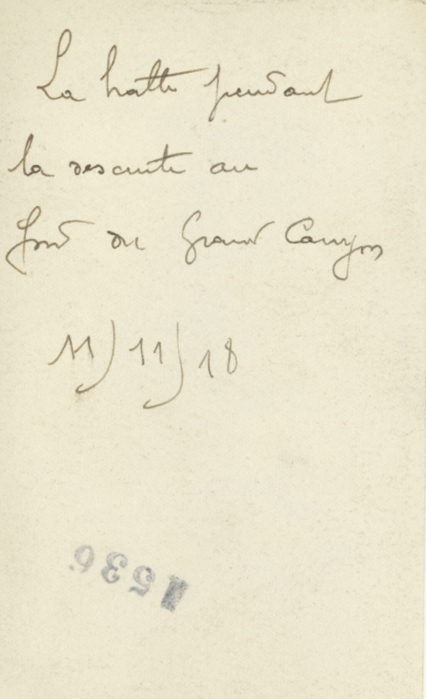 La halte pendant
la descente au
fond du Grand Canyon
11/11/18
1536